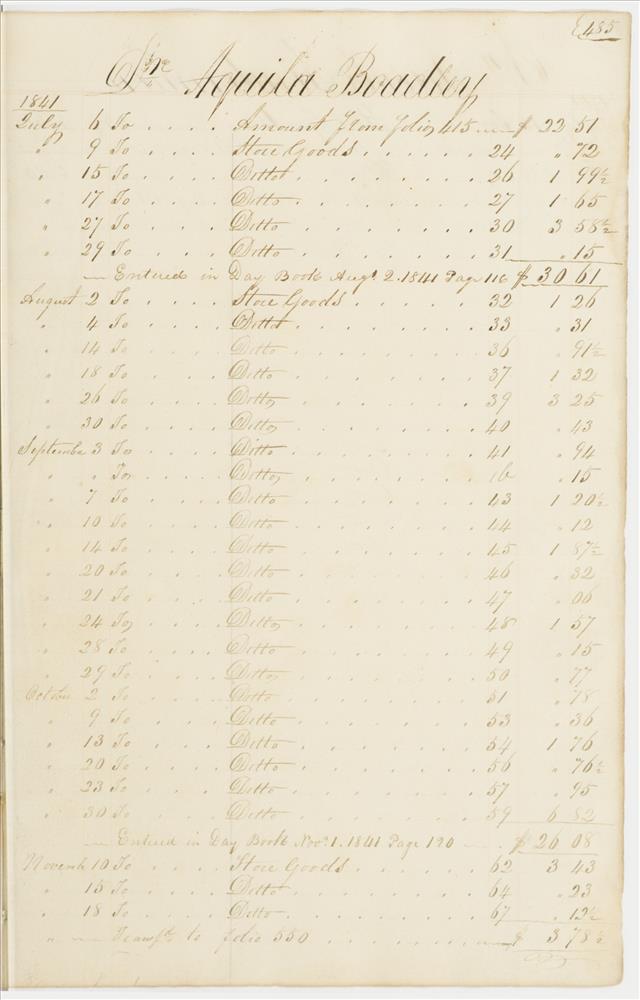 485
Dr Aquila Boadley
1841
July 6 To . . . . Amount from folio 415 — $ 22 51
" 9 To . . . . Store Goods . . . . . . 24 " 72
" 15 To . . . . Ditto . . . . . . . . 26 1 99½
" 17 To . . . . Ditto . . . . . . . . 27 1 65
" 27 To . . . . Ditto . . . . . . . . 30 3 58½
" 29 To . . . . Ditto . . . . . . . . 31 " 15
— Entered in Day Book Augt. 2. 1841 Page 116 $ 30 61
August 2 To . . . . Store Goods . . . . . . 32 1 26
" 4 To . . . . Ditto . . . . . . . . 33 " 31
" 14 To . . . . Ditto . . . . . . . . 36 " 91½
" 18 To . . . . Ditto . . . . . . . . 37 1 32
" 26 To . . . . Ditto . . . . . . . . 39 3 25
" 30 To . . . . Ditto . . . . . . . . 40 " 43
September 3 To . . . . Ditto . . . . . . . . 41 " 94
" " To . . . . Ditto . . . . . . . . ib " 15
" 7 To . . . . Ditto . . . . . . . . 43 1 20½
" 10 To . . . . Ditto . . . . . . . . 44 " 12
" 14 To . . . . Ditto . . . . . . . . 45 1 87½
" 20 To . . . . Ditto . . . . . . . . 46 " 32
" 21 To . . . . Ditto . . . . . . . . 47 " 06
" 24 To . . . . Ditto . . . . . . . . 48 1 57
" 28 To . . . . Ditto . . . . . . . . 49 " 15
" 29 To . . . . Ditto . . . . . . . . 50 " 77
October 2 To . . . . Ditto . . . . . . . . 51 " 78
" 9 To . . . . Ditto . . . . . . . . 53 " 36
" 13 To . . . . Ditto . . . . . . . . 54 1 76
" 20 To . . . . Ditto . . . . . . . . 56 " 76½
" 23 To . . . . Ditto . . . . . . . . 57 " 95
" 30 To . . . . Ditto . . . . . . . . 59 6 82
— Entered in Day Book Novr. 1. 1841 Page 120 — $ 26 08
Novemb 10 To . . . . Store Goods . . . . . . 62 3 43
" 15 To . . . . Ditto . . . . . . . . 64 " 23
" 18 To . . . . Ditto . . . . . . . . 67 " 12½
" — Transfd. to folio 550 . . . . . . . . — $ 3 78½